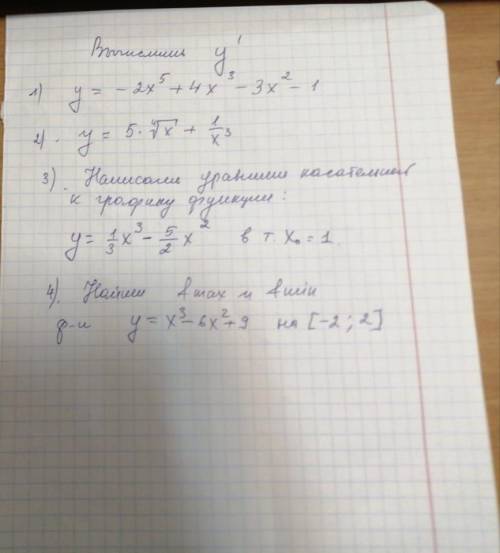 Вычислить y'
1) y = -2x⁵ + 4x³ - 3x² - 1
2). y = 5·∜x + 1/x³
3). Написать уравнение касательной
к графику функции:
y = 1/3 x³ - 5/2 x² в т. x₀ = 1
4). Найти fmax и fmin
ф-и y = x³ - 6x² + 9 на [-2; 2]